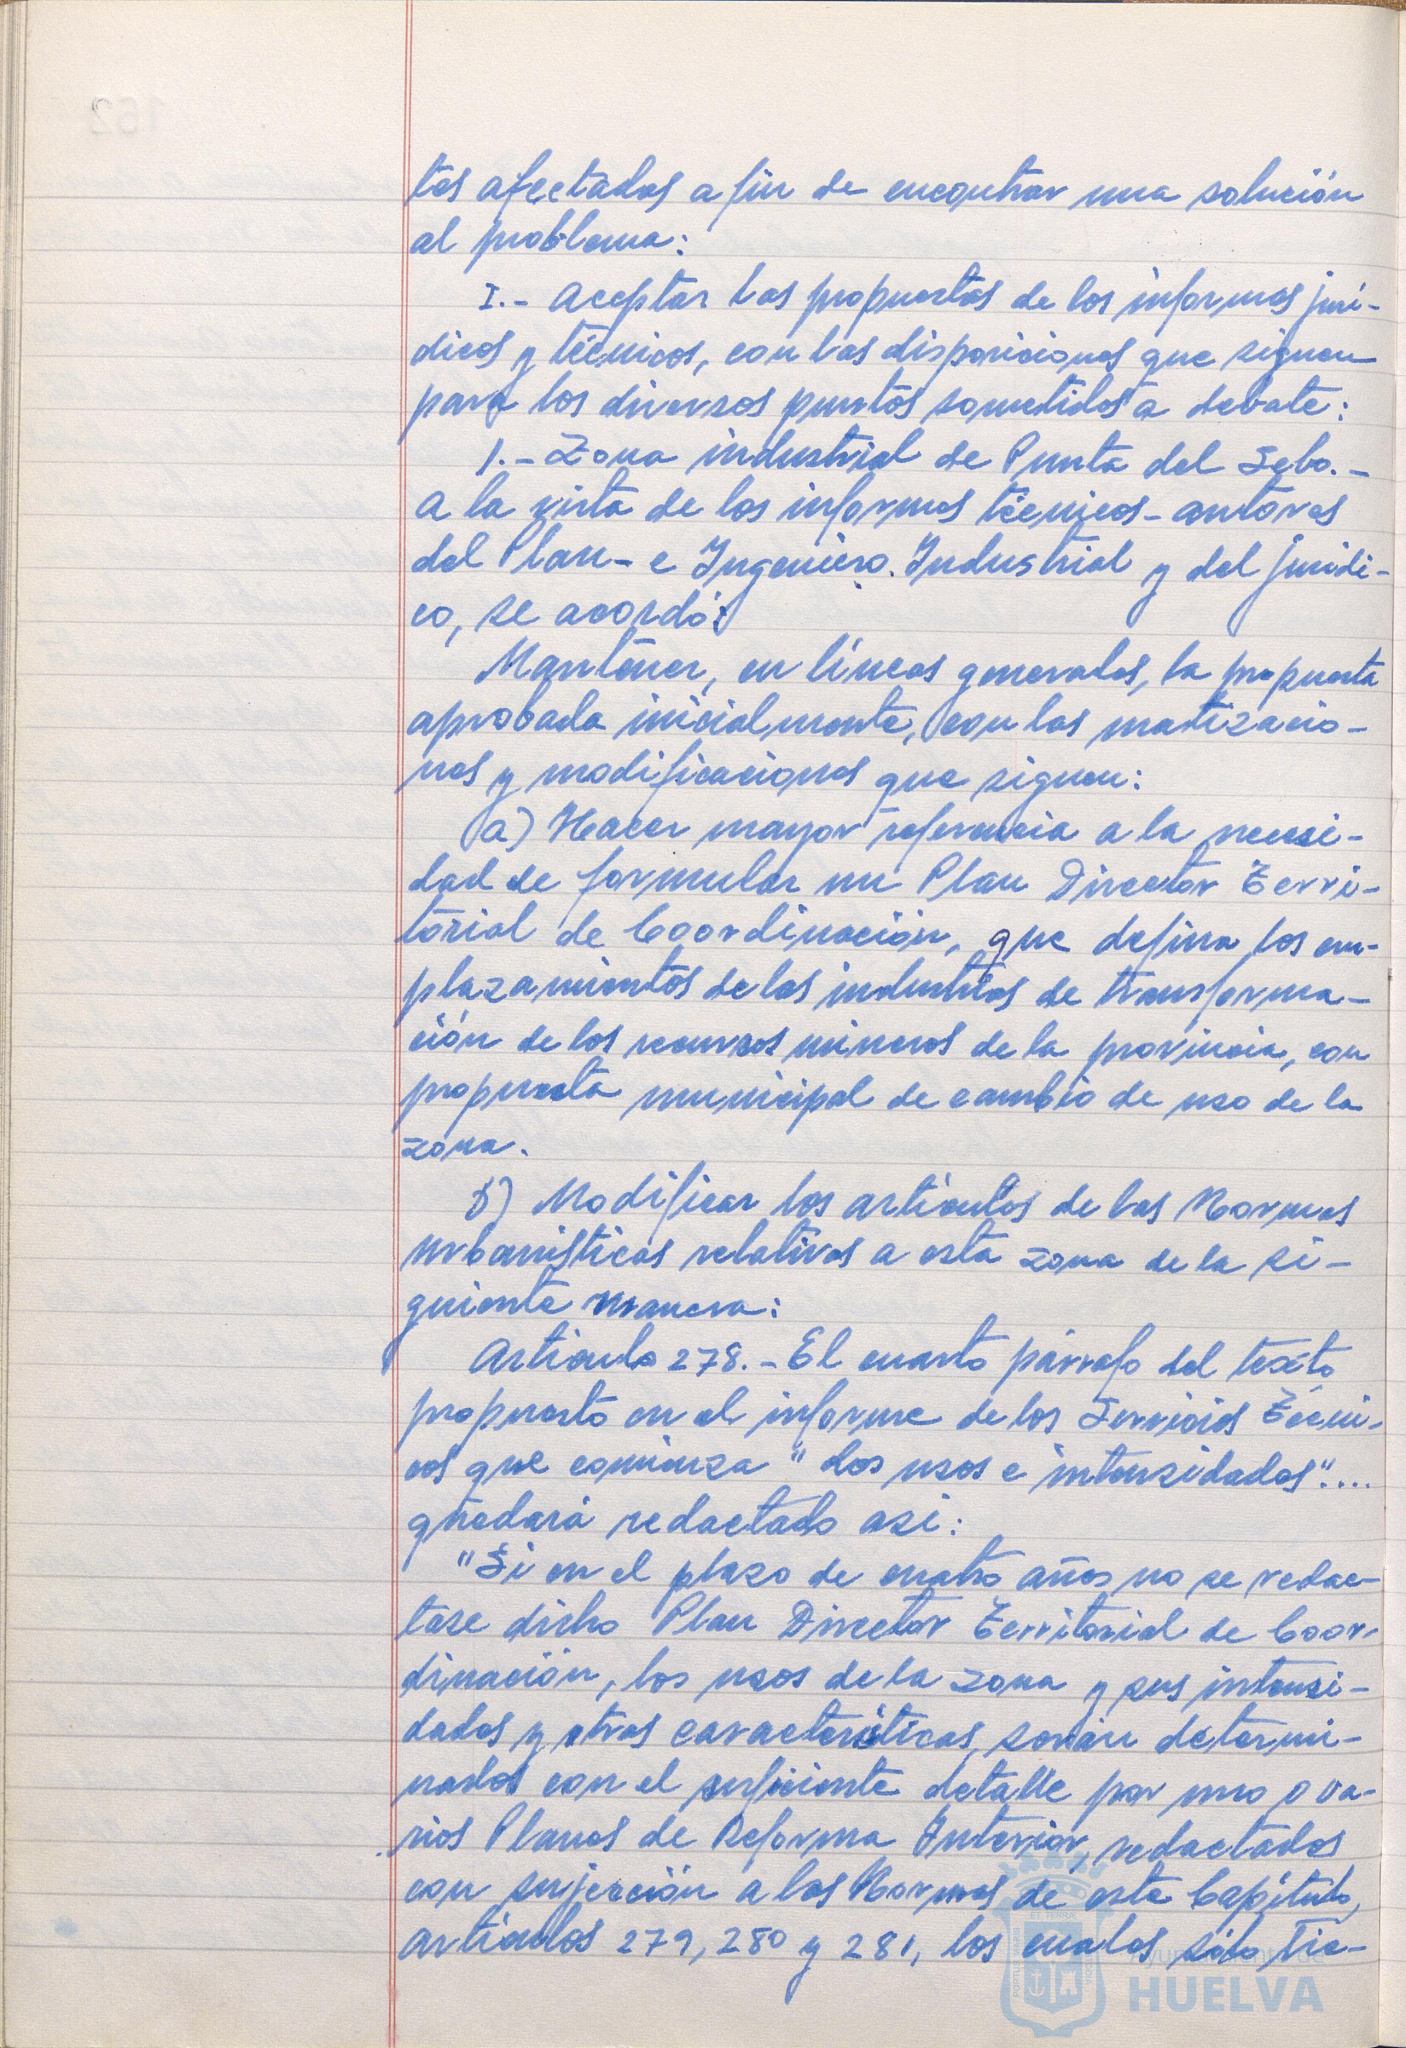 tos afectados a fin de encontrar una solución
al problema:
I.- Aceptar las propuestas de los informes jurí-
dicos y técnicos, con las disposiciones que siguen
para los diversos puntos sometidos a debate:
1.- Zona industrial de Punta del Sebo.-
A la vista de los informes técnicos - autores
del Plan - e Ingeniero Industrial y del jurídi-
co, se acordó:
Mantener, en líneas generales, la propuesta
aprobada inicialmente, con las matizacio-
nes y modificaciones que siguen:
a) Hacer mayor referencia a la necesi-
dad de formular un Plan Director Terri-
torial de Coordinación, que defina los em-
plazamientos de las industrias de transforma-
ción de los recursos mineros de la provincia, con
propuesta municipal de cambio de uso de la
zona.
b) Modificar los artículos de las Normas
urbanísticas relativas a esta zona de la si-
guiente manera:
Artículo 278.- El cuarto párrafo del texto
propuesto en el informe de los Servicios Técni-
cos que comienza "Los usos e intensidades"....
quedará redactado así:
"Si en el plazo de cuatro años no se redac-
tase dicho Plan Director Territorial de Coor-
dinación, los usos de la zona y sus intensi-
dades y otras características, serán determi-
nados con el suficiente detalle por uno o va-
rios Planes de Reforma Interior, redactados
con sujección a las Normas de este Capítulo,
artículos 279, 280 y 281, los cuales sólo tie-
Ayuntamiento de
HUELVA